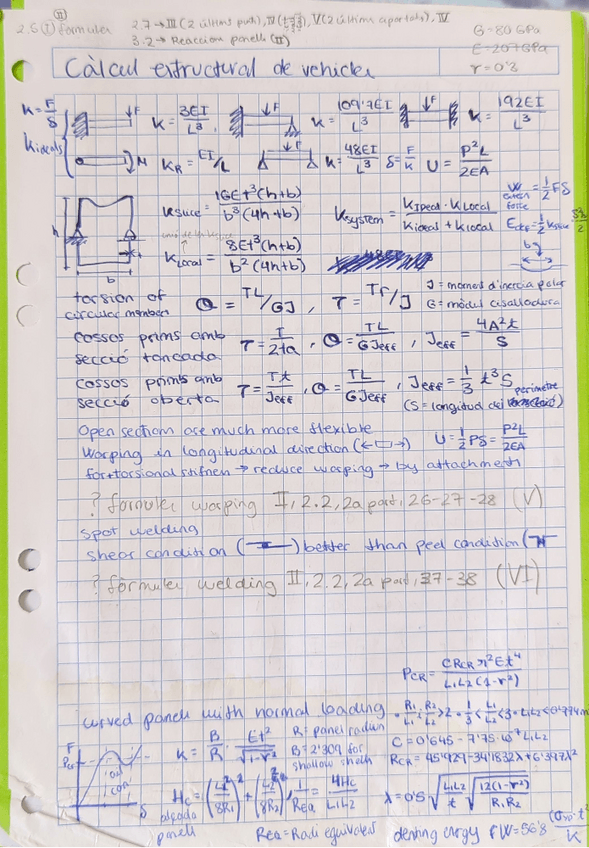 2.7→III (2 últims punts), IV, V (2 últims apartats), IV
2.6 (I) (II) formules
3.2→Reaccions panells (II)
G=80 GPa
E=207GPa
ν=0'3
Càlcul estructural de vehicles
K=F/δ
Kideals
F K=3EI/L³, F K=109'7EI/L³ F K=192EI/L³
M K_R=EI/L F K=48EI/L³ δ=F/K U=P²L/2EA
h b t
Kslice=16Et³(h+b)/b³(4h+b) Ksystem=Kideal·Klocal/(Kideal+Klocal) W extern force=½Fδ
Klocal=8Et³(h+b)/b²(4h+b) b
torsion of circular members θ=TL/GJ, τ=Tr/J J=moment d'inèrcia polar
G=mòdul cisalladura
cossos prims amb secció tancada τ=T/2ta, θ=TL/GJeff, Jeff=4A²t/S
cossos prims amb secció oberta τ=Tt/Jeff, θ=TL/GJeff, Jeff=⅓t³S perímetre
(S=longitud del)
Open section are much more flexible U=½Pδ=P²L/2EA
Warping in longitudinal direction (←▭→)
for ↑ torsional stifness → reduce warping → by attachment
? formules warping II, 2.2, 2a part, 26-27-28 (V)
spot welding
shear condition ( ) better than peel condition (
? fórmules welding II, 2.2, 2a part, 37-38 (VI)
P_CR=C R_CR π²Et⁴/L₁L₂(1-ν²)
curved panels with normal loading
F Pcr δ
K=B/R·Et²/√1-ν² R=panel radius
B=2'309 for shallow shells
C=0'645-7'75·10⁻⁴L₁L₂
R_CR=45'929-34'1832λ+6'397λ²
Hc=(L₁²/8R₁)+(L₂²/8R₂), 1/R_EQ=4Hc/L₁L₂
λ=0'5√L₁L₂/t √12(1-ν²)/R₁R₂
alçada panell
REQ=Radi equivalent denting energy W=56'8